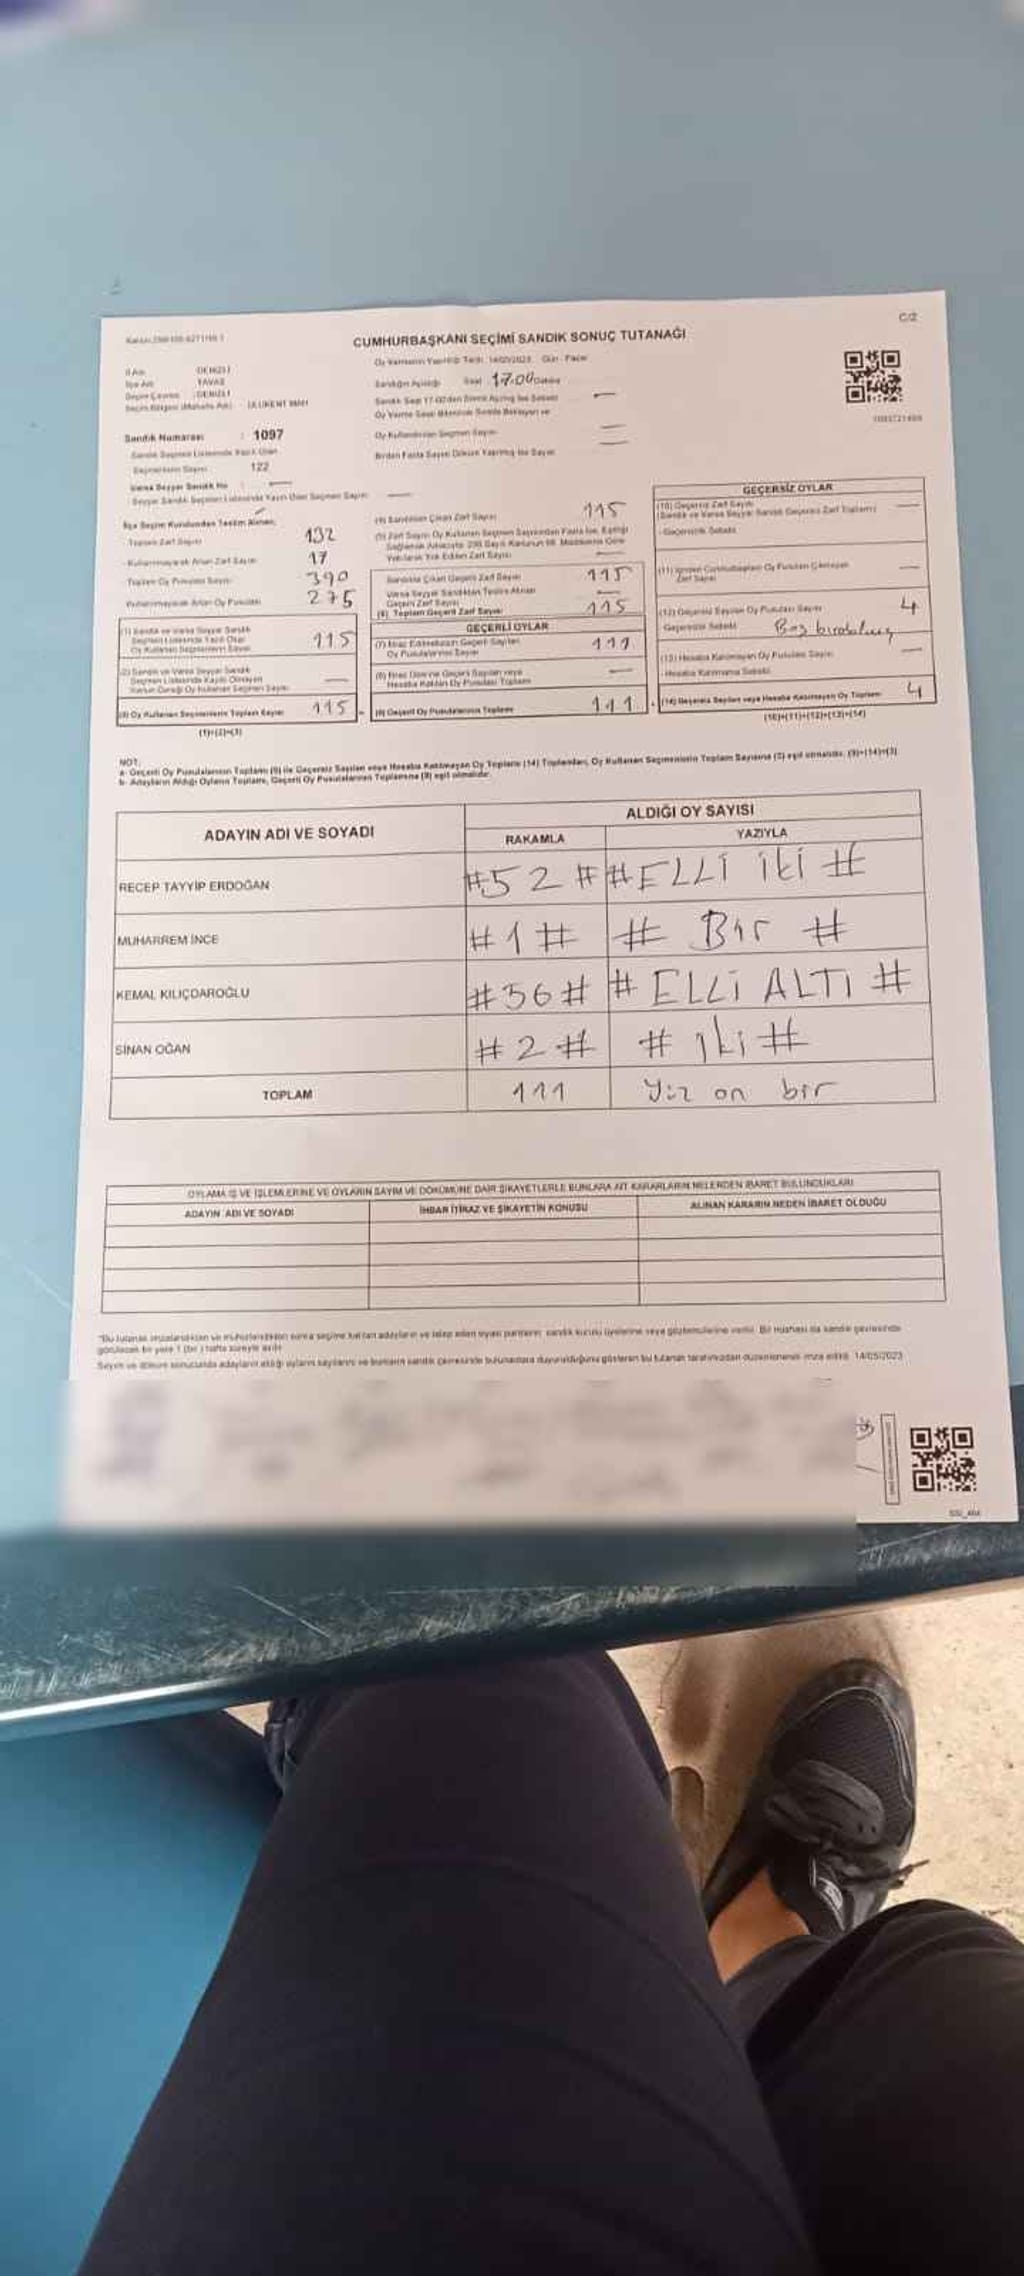 C/2
CUMHURBAŞKANI SEÇİMİ SANDIK SONUÇ TUTANAĞI
İl Adı : DENİZLİ
İlçe Adı : TAVAS
Seçim Çevresi : DENİZLİ
Seçim Bölgesi (Mahalle Adı) : ULUKENT MAH
Oy Vermenin Yapıldığı Tarih : 14/05/2023 Gün : Pazar
Sandığın Açıldığı Saat 17.00 Dakika
Sandık Saat 17:00'den Sonra Açılmış İse Sebebi —
Oy Verme Saati Bitiminde Sırada Bekleyen ve
Oy Kullandırılan Seçmen Sayısı —
Birden Fazla Sayım Döküm Yapılmış İse Sayısı —
Sandık Numarası : 1097
Sandık Seçmen Listesinde Yazılı Olan
Seçmenlerin Sayısı : 122
Varsa Seyyar Sandık No : —
Seyyar Sandık Seçmen Listesinde Yazılı Olan Seçmen Sayısı : —
İlçe Seçim Kurulundan Teslim Alınan;
Toplam Zarf Sayısı 132
Kullanılmayarak Artan Zarf Sayısı 17
Toplam Oy Pusulası Sayısı 390
Kullanılmayarak Artan Oy Pusulası 275
(1) Sandık ve Varsa Seyyar Sandık
Seçmen Listesinde Yazılı Olan
Oy Kullanan Seçmenlerin Sayısı 115
(2) Sandık ve Varsa Seyyar Sandık
Seçmen Listesinde Kayıtlı Olmayan
Kanun Gereği Oy Kullanan Seçmen Sayısı —
(3) Oy Kullanan Seçmenlerin Toplam Sayısı 115
(1)+(2)=(3)
(4) Sandıktan Çıkan Zarf Sayısı 115
(5) Zarf Sayısı Oy Kullanan Seçmen Sayısından Fazla İse, Eşitliği
Sağlamak Amacıyla, 298 Sayılı Kanunun 98. Maddesine Göre
Yakılarak Yok Edilen Zarf Sayısı —
Sandıkta Çıkan Geçerli Zarf Sayısı 115
Varsa Seyyar Sandıktan Teslim Alınan
Geçerli Zarf Sayısı —
(6) Toplam Geçerli Zarf Sayısı 115
GEÇERLİ OYLAR
(7) İtiraz Edilmeksizin Geçerli Sayılan
Oy Pusulalarının Sayısı 111
(8) İtiraz Üzerine Geçerli Sayılan veya
Hesaba Katılan Oy Pusulası Toplamı —
(9) Geçerli Oy Pusulalarının Toplamı 111
GEÇERSİZ OYLAR
(10) Geçersiz Zarf Sayısı
(Sandık ve Varsa Seyyar Sandık Geçersiz Zarf Toplamı) —
Geçersizlik Sebebi
(11) İçinden Cumhurbaşkanı Oy Pusulası Çıkmayan
Zarf Sayısı —
(12) Geçersiz Sayılan Oy Pusulası Sayısı 4
Geçersizlik Sebebi
(13) Hesaba Katılmayan Oy Pusulası Sayısı —
Hesaba Katılmama Sebebi
(14) Geçersiz Sayılan veya Hesaba Katılmayan Oy Toplamı 4
(10)+(11)+(12)+(13)=(14)
NOT:
a- Geçerli Oy Pusulalarının Toplamı (9) ile Geçersiz Sayılan veya Hesaba Katılmayan Oy Toplamı (14) Toplamları, Oy Kullanan Seçmenlerin Toplam Sayısına (3) eşit olmalıdır. (9)+(14)=(3)
b- Adayların Aldığı Oyların Toplamı, Geçerli Oy Pusulalarının Toplamına (9) eşit olmalıdır.
ADAYIN ADI VE SOYADI ALDIĞI OY SAYISI
RAKAMLA YAZIYLA
RECEP TAYYİP ERDOĞAN #52# #ELLİ İKİ#
MUHARREM İNCE #1# # Bir #
KEMAL KILIÇDAROĞLU #56# # ELLİ ALTI #
SİNAN OĞAN #2# # iki #
TOPLAM 111 Yüz on bir
OYLAMA İŞ VE İŞLEMLERİNE VE OYLARIN SAYIM VE DÖKÜMÜNE DAİR ŞİKAYETLERLE BUNLARA AİT KARARLARIN NELERDEN İBARET BULUNDUKLARI
ADAYIN ADI VE SOYADI İHBAR İTİRAZ VE ŞİKAYETİN KONUSU ALINAN KARARIN NEDEN İBARET OLDUĞU
*Bu tutanak imzalandıktan ve mühürlendikten sonra seçime katılan adayların ve talep eden siyasi partilerin sandık kurulu üyelerine veya gözlemcilerine verilir. Bir nüshası da sandık çevresinde
görülecek bir yere 1 (bir) hafta süreyle asılır.
Sayım ve döküm sonucunda adayların aldığı oyların sayılarını ve bunların sandık çevresinde bulunanlara duyurulduğunu gösteren bu tutanak tarafımızdan düzenlenerek imza edildi. 14/05/2023